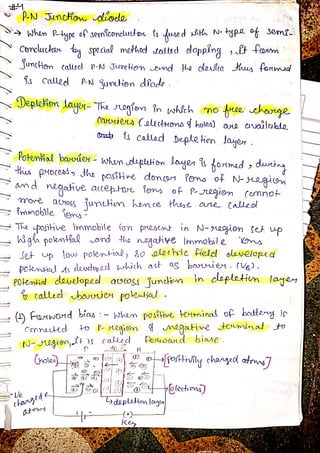 #1
P-N Junction diode
→ When P-type of semiconductor is fused with N-type of semi-
Conductor by special method called dopping, it from
junction called P-N Junction and the device thus formed
is called P-N junction diode.
Depletion layer - The region in which no free charge
carriers (electrons & holes) are available
is called Depletion layer.
Potential barrier - When depletion layer is formed, during
this process, the positive donor ions of N-region
and negative acceptor ions of P-region cannot
move across junction hence these are called
immobile ions-
- The positive immobile ion present in N-region set up
high potential and the negative immobile ions
set up low potential, so electric field developed
potential is developed which act as barrier. (VB).
Potential developed across junction in depletion layer
is called barrier potential.
(1) Forward bias :- When positive terminal of battery is
connected to P-region & negative terminal to
N-region, it is called forward biase.
[holes]
[Positively charged atoms]
[electrons]
-Ve
charged
atoms
depletion layer
Key